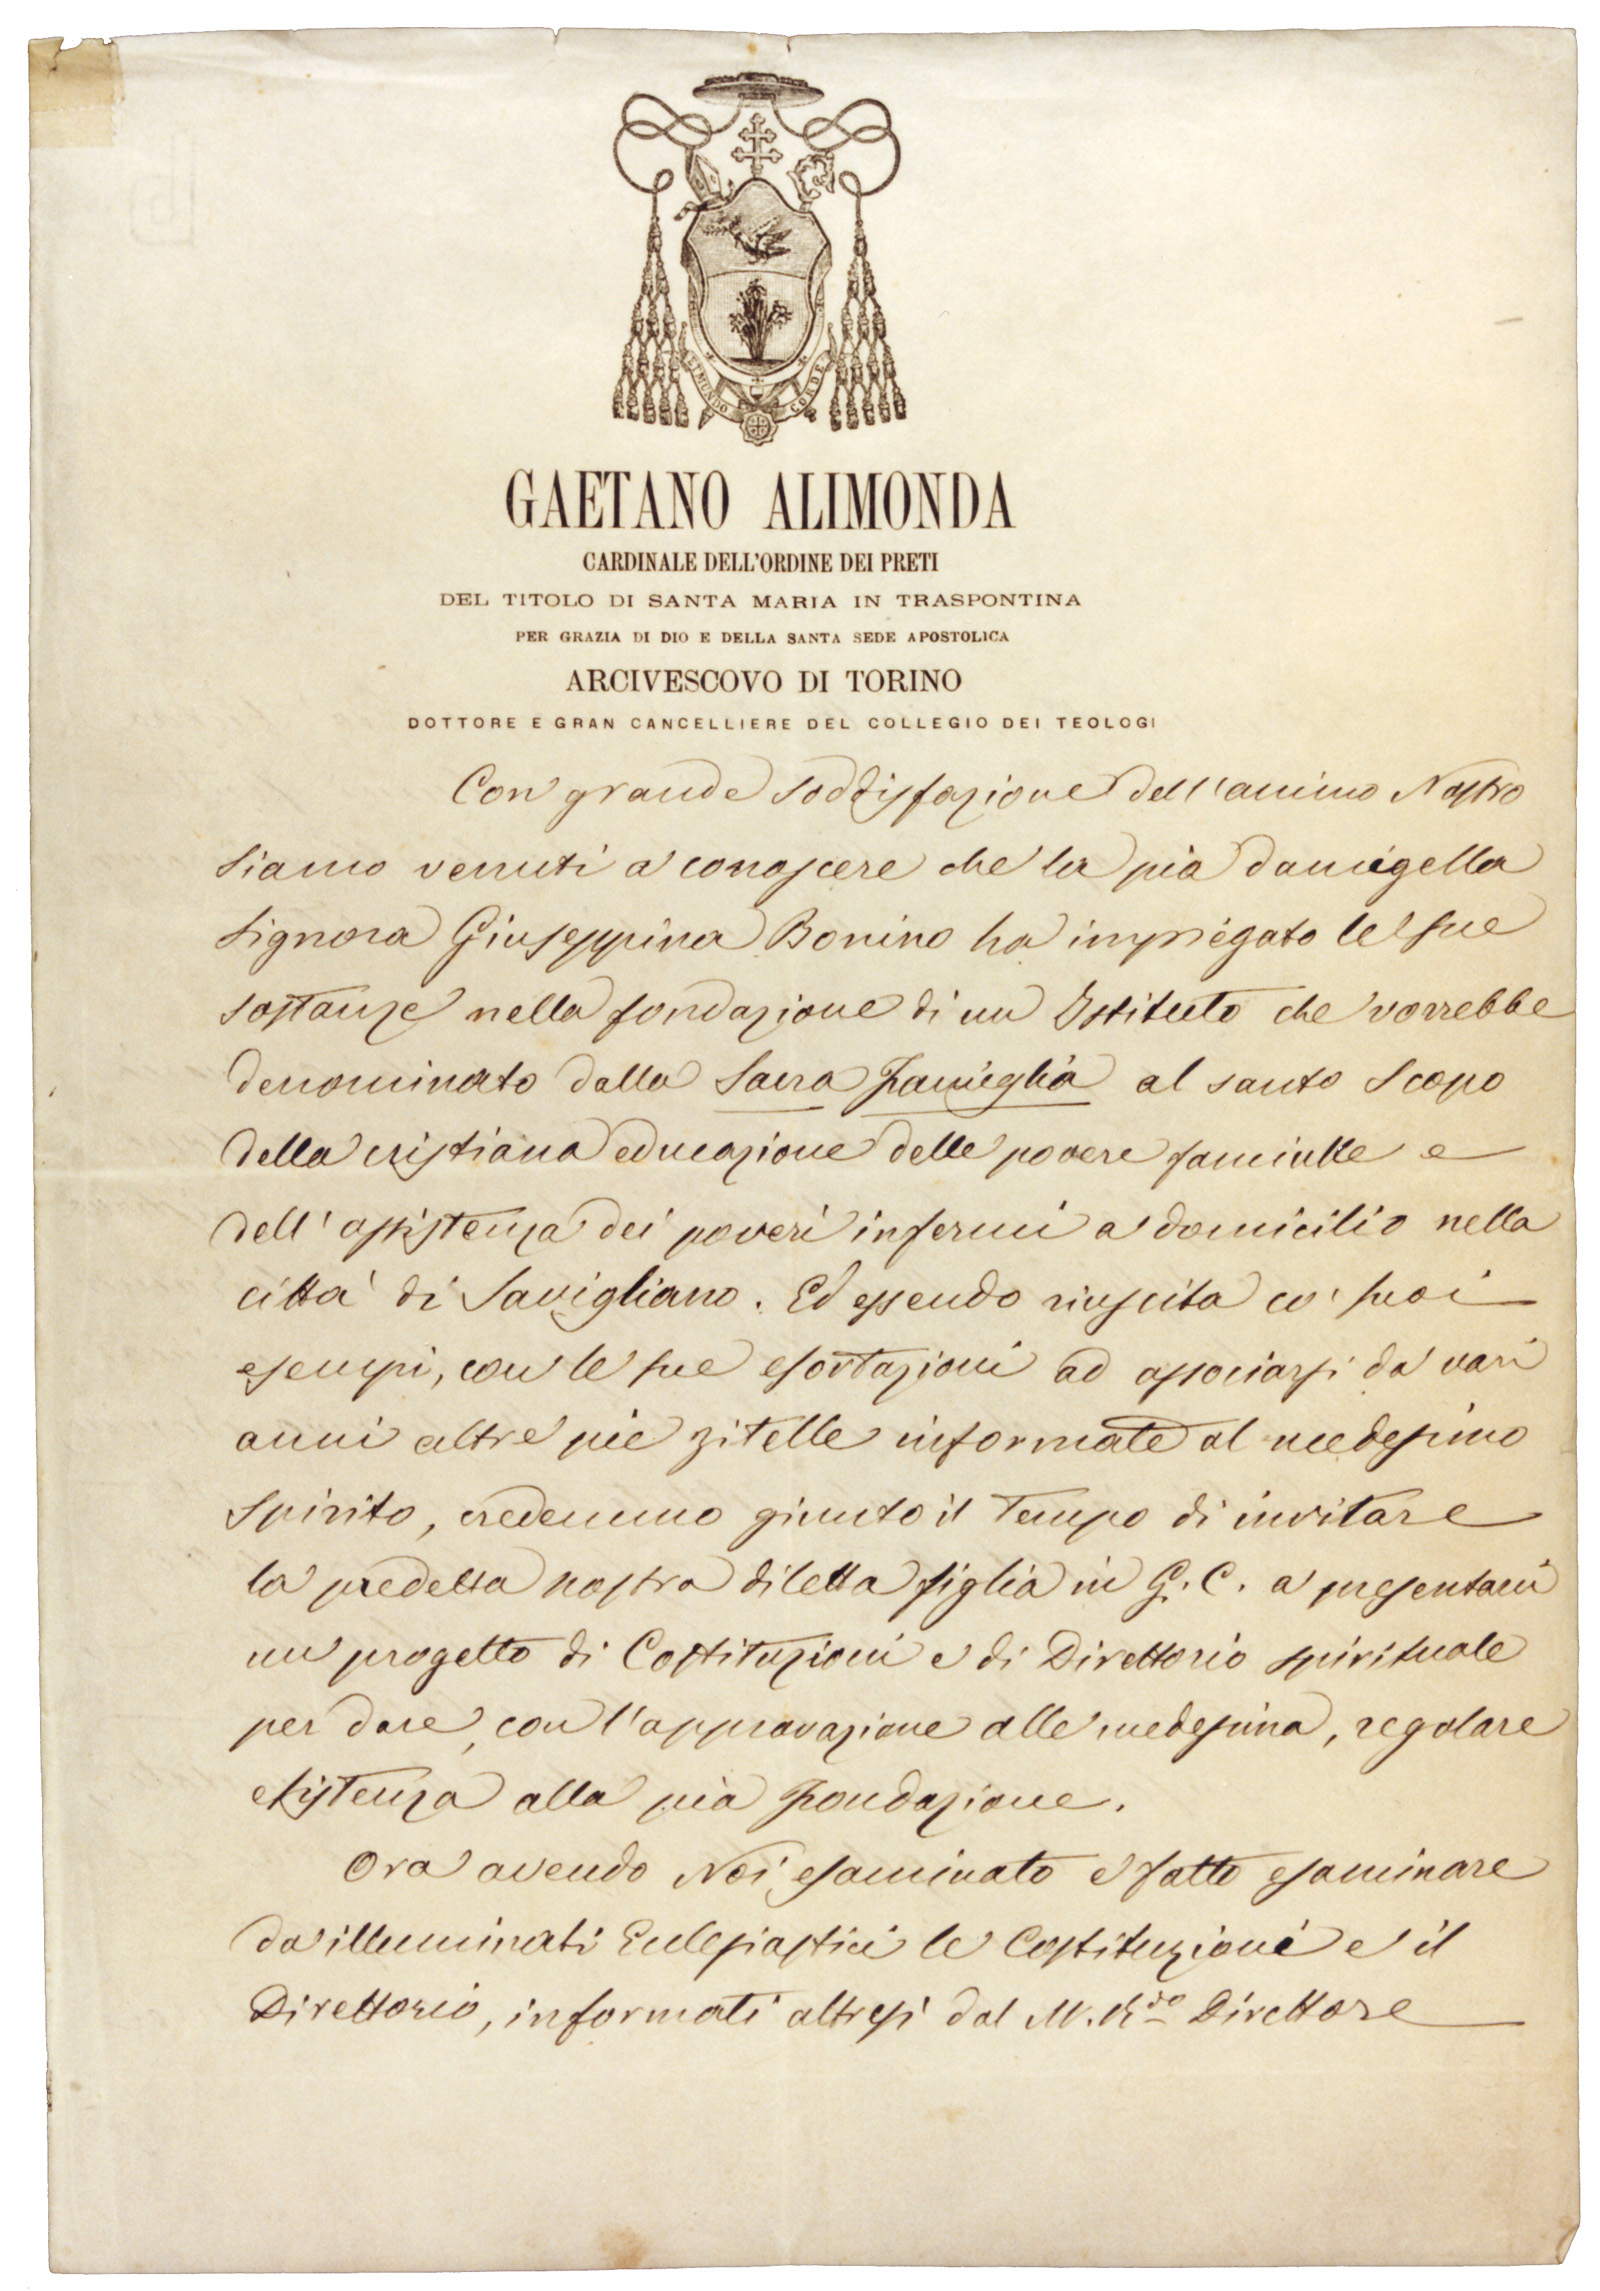 MUNDO CORDE
GAETANO ALIMONDA
CARDINALE DELL'ORDINE DEI PRETI
DEL TITOLO DI SANTA MARIA IN TRASPONTINA
PER GRAZIA DI DIO E DELLA SANTA SEDE APOSTOLICA
ARCIVESCOVO DI TORINO
DOTTORE E GRAN CANCELLIERE DEL COLLEGIO DEI TEOLOGI
Con grande soddisfazione dell'animo Nostro
siamo venuti a conoscere che la pia damigella
Signora Giuseppina Bonino ha impiegato le sue
sostanze nella fondazione di un Istituto che vorrebbe
denominato dalla Sacra Famiglia al santo scopo
della cristiana educazione delle povere fanciulle e
dell'assistenza dei poveri infermi a domicilio nella
città di Savigliano. Ed essendo riuscita co' suoi
esempi, con le sue esortazioni ad associarsi da vari
anni altre pie zitelle informate al medesimo
spirito, credemmo giunto il tempo di invitare
la predetta nostra diletta figlia in G. C. a presentarci
un progetto di Costituzioni e di Direttorio spirituale
per dare, con l'approvazione alle medesima, regolare
esistenza alla pia Fondazione.
Ora avendo Noi esaminato e fatto esaminare
da illuminati Eclesiastici le Costituzioni e il
Direttorio, informati altresì dal M. R.do Direttore